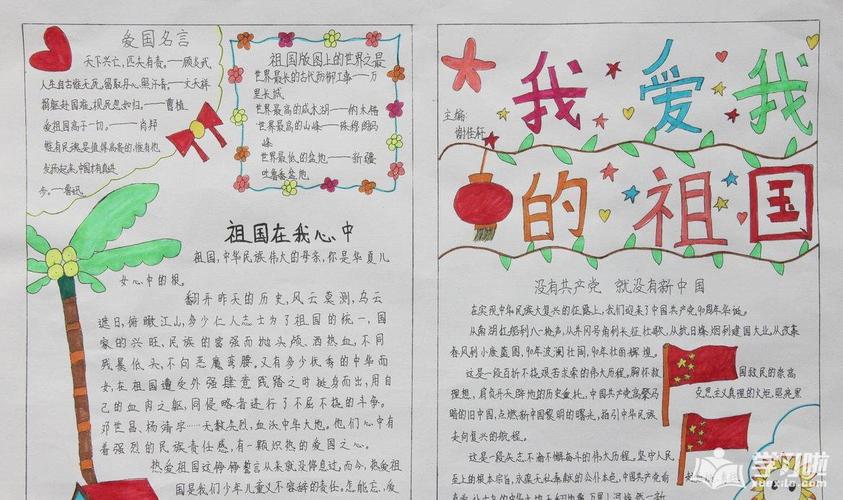 爱国名言
天下兴亡,匹夫有责。——顾炎武
人生自古谁无死,留取丹心照汗青。——文天祥
捐躯赴国难,视死忽如归。——曹植
爱祖国高于一切。——肖邦
惟有民魂是值得宝贵的,惟有他
发扬起来,中国才有真进
步。——鲁迅
祖国版图上的世界之最
世界最长的古代防御工事——万
里长城
世界最高的咸水湖——纳木错
世界最高的山峰——珠穆朗玛
峰
世界最低的盆地——新疆
吐鲁番盆地
祖国在我心中
祖国,中华民族伟大的母亲,你是华夏儿
女心中的根。
翻开昨天的历史,风云莫测,乌云
遮日,俯瞰江山,多少仁人志士为了祖国的统一,国
家的兴旺、民族的富强而抛头颅、洒热血,不同
残暴低头,不向恶魔弯腰,又有多少优秀的中华而
女,在祖国遭受外强肆意践踏之时挺身而出,用自
己的血肉之躯,同侵略者进行了不屈不挠的斗争。
邓世昌、杨靖宇……无数英烈,血沃中华大地。他们心中有
着强烈的民族责任感,有一颗炽热的爱国之心。
热爱祖国这
来就没停息过,而今,热爱祖
国是我们少年儿童义不容辞的责任,怎能忘,爱
我爱我
的祖国
主编
谢佳轩
没有共产党 就没有新中国
在实现中华民族大复兴的征路上,我们迎来了中国共产党90周年华诞。
从南湖红船到八一枪声,从井冈号角到长征壮歌,从抗日烽烟到建国大业,从改革
春风到小康蓝图,90年波澜壮阔,90年壮丽辉煌。
这是一段百折不挠艰苦求索的伟大历程。胸怀救
国救民的崇高
理想,肩负开天辟地的历史重托,中国共产党高擎马
克思主义真理的火炬,照亮黑
暗的旧中国,点燃新中国黎明的曙光,指引中华民族
走向复兴的航程。
这是一段矢志不渝不懈奋斗的伟大历程。坚守人民
至上的根本宗旨,
中国共产党带
学习啦
xuexila.com